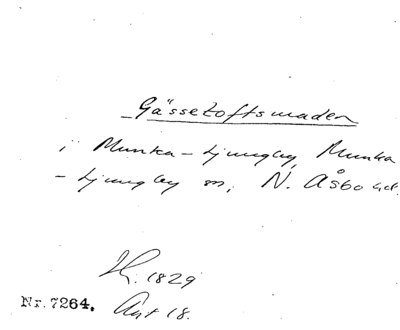 Gässetoftsmaden
i Munka-Ljungby, Munka
-Ljungby sn, N. Åsbo hd.
H. 1829
Nr. 7264. Akt 18.